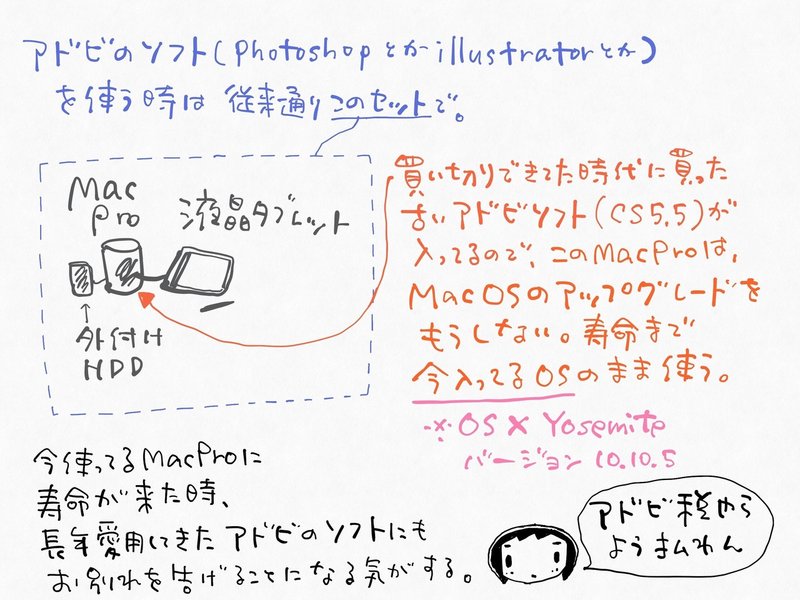 アドビのソフト(Photoshopとかillustratorとか)
を使う時は従来通りこのセットで。
Mac
Pro
液晶タブレット
↑
外付け
HDD
買い切りできてた時代に買った
古いアドビソフト(CS5.5)が
入ってるので、このMacProは、
MacOSのアップグレードを
もうしない。寿命まで
今入ってるOSのまま使う。
※OS X Yosemite
バージョン 10.10.5
今使ってるMacProに
寿命が来た時、
長年愛用してきたアドビのソフトにも
お別れを告げることになる気がする。
アドビ税やら
よう払わん